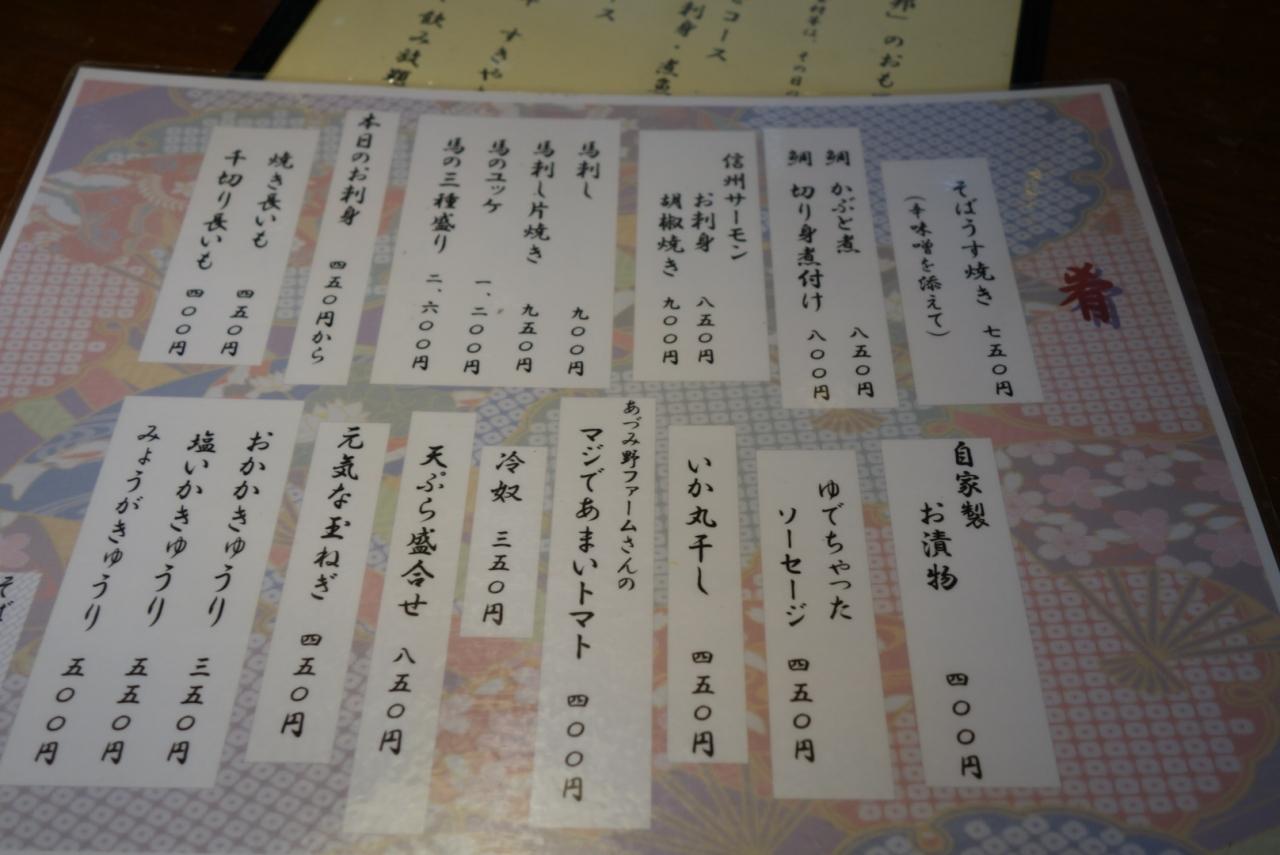 肴
そばうす焼き 七五〇円
(辛味噌を添えて)
鯛 かぶと煮 八五〇円
鯛 切り身煮付け 八〇〇円
信州サーモン
お刺身 八五〇円
胡椒焼き 九〇〇円
馬刺し 九〇〇円
馬刺し片焼き 九五〇円
馬のユッケ 一、二〇〇円
馬の三種盛り 二、六〇〇円
本日のお刺身 四五〇円から
焼き長いも 四五〇円
千切り長いも 四〇〇円
自家製
お漬物 四〇〇円
ゆでちゃった
ソーセージ 四五〇円
いか丸干し 四五〇円
あづみ野ファームさんの
マジであまいトマト 四〇〇円
冷奴 三五〇円
天ぷら盛合せ 八五〇円
元気な玉ねぎ 四五〇円
おかかきゅうり 三五〇円
塩いかきゅうり 五五〇円
みょうがきゅうり 五〇〇円
そば
」のおも
は、その日の
コース
刺身・煮魚
ス
すきや
飲み放題